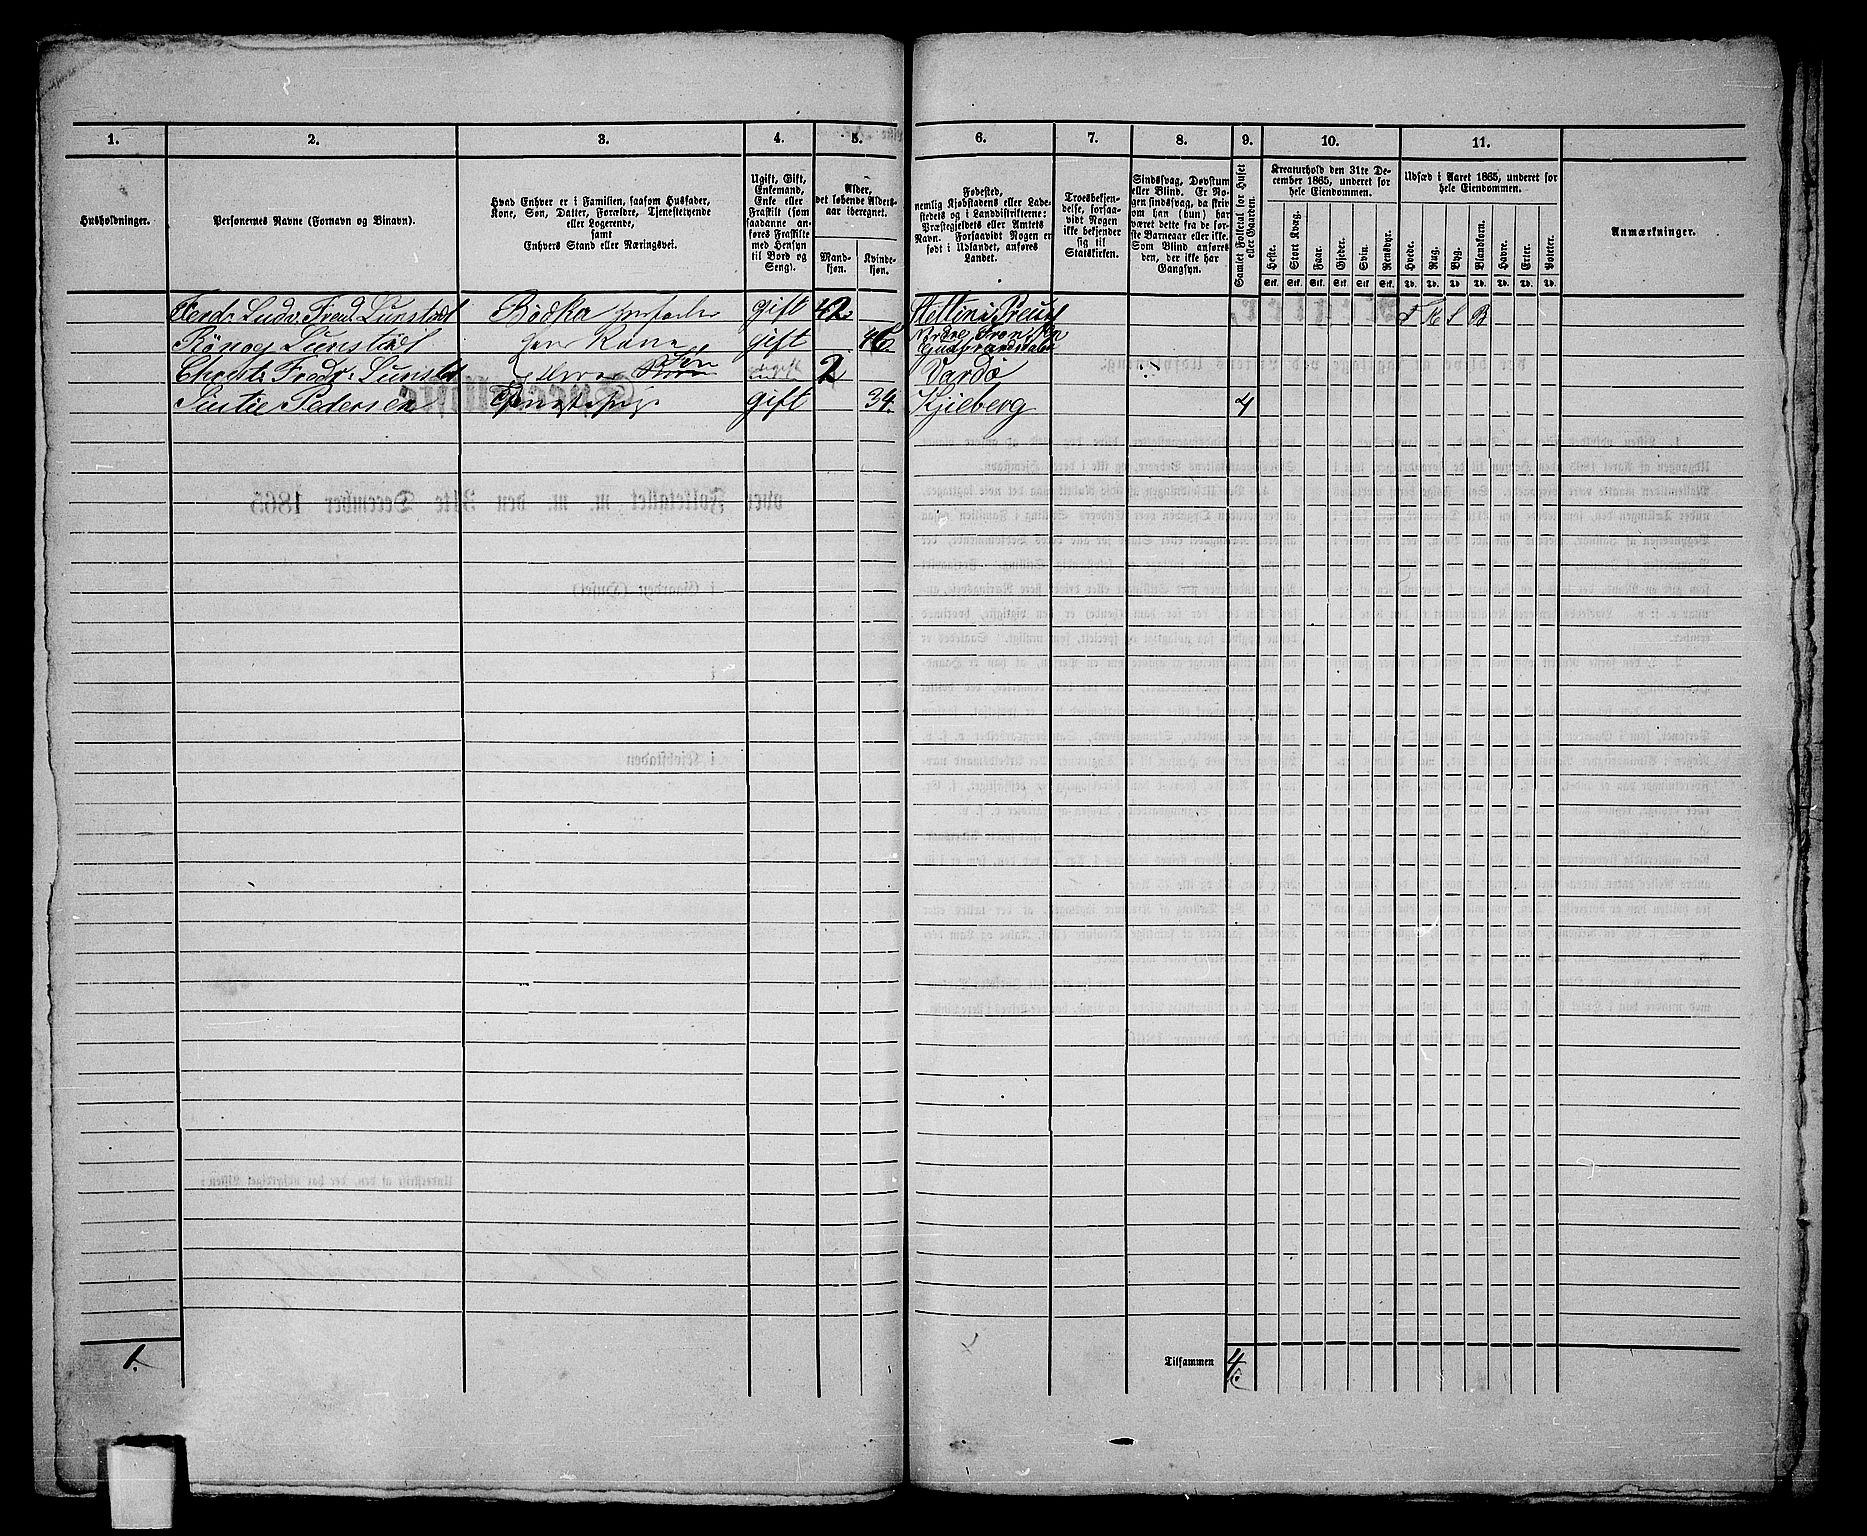 1. 2. 3. 4. 5. 6. 7. 8. 9. 10. 11.
Husholdninger.
Personernes Navne (Fornavn og Binavn).
Hvad Enhver er i Familien, saasom Husfader,
Kone, Søn, Datter, Forældre, Tjenestetyende
eller Logerende,
samt
Enhvers Stand eller Næringsvei.
Ugift, Gift,
Enkemand,
Enke eller
Fraskilt (som
saadanne an-
føres Fraskilte
med Hensyn
til Bord og
Seng).
Alder,
det løbende Alders-
aar iberegnet.
Mand-
kjøn.
Kvinde-
kjøn.
Fødested,
nemlig Kjøbstadens eller Lade-
stedets og i Landdistrikterne:
Præstegjeldets eller Amtets
Navn. Forsaavidt Nogen er
født i Udlandet, anføres
Landet.
Troesbekjen-
delse, forsaa-
vidt Nogen
ikke bekjender
sig til
Statskirken.
Sindssvag, Døvstum
eller Blind. Er No-
gen sindssvag, da skriv
om han (hun) har
været dette fra de før-
ste Barneaar eller ikke.
Som Blind anføres
den, der ikke har
Gangsyn.
Samlet Folketal for Huset
eller Gaarden.
Kreaturhold den 31te De-
cember 1865, underet for
hele Eiendommen.
Heste.
Stort Kvæg.
Faar.
Gjeder.
Svin.
Rensdyr.
Stk. Stk. Stk. Stk. Stk. Stk.
Udsæd i Aaret 1865, underet for
hele Eiendommen.
Hvede.
Rug.
Byg.
Blandkorn.
Havre.
Erter.
Poteter.
Td. Td. Td. Td. Td. Td. Td.
Anmærkninger.
Ferd. Ludv. Fred. Lunstäd gift 42 Stettin i Preus
Rönog Lunstäd hans Kone gift 46 Nordre Fron
Gudbrandsdalen
Fredr. Lunstäd Søn ugift 2 Vardö
Pedersen gift 34 Kjieberg 4
1.
Tilsammen 4